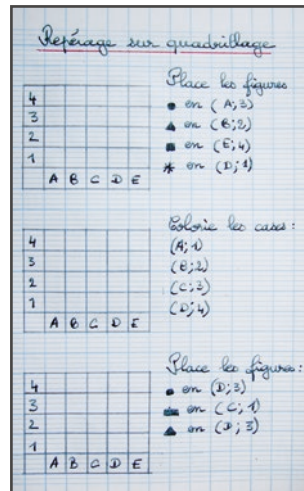 Repérage sur quadrillage
Place les figures
● en (A;3)
▲ en (B;2)
■ en (E;4)
* en (D;1)
4
3
2
1
A B C D E
Colorie les cases:
(A;1)
(B;2)
(C;3)
(D;4)
4
3
2
1
A B C D E
Place les figures:
en (D;3)
en (C;1)
▲ en (D;3)
4
3
2
1
A B C D E